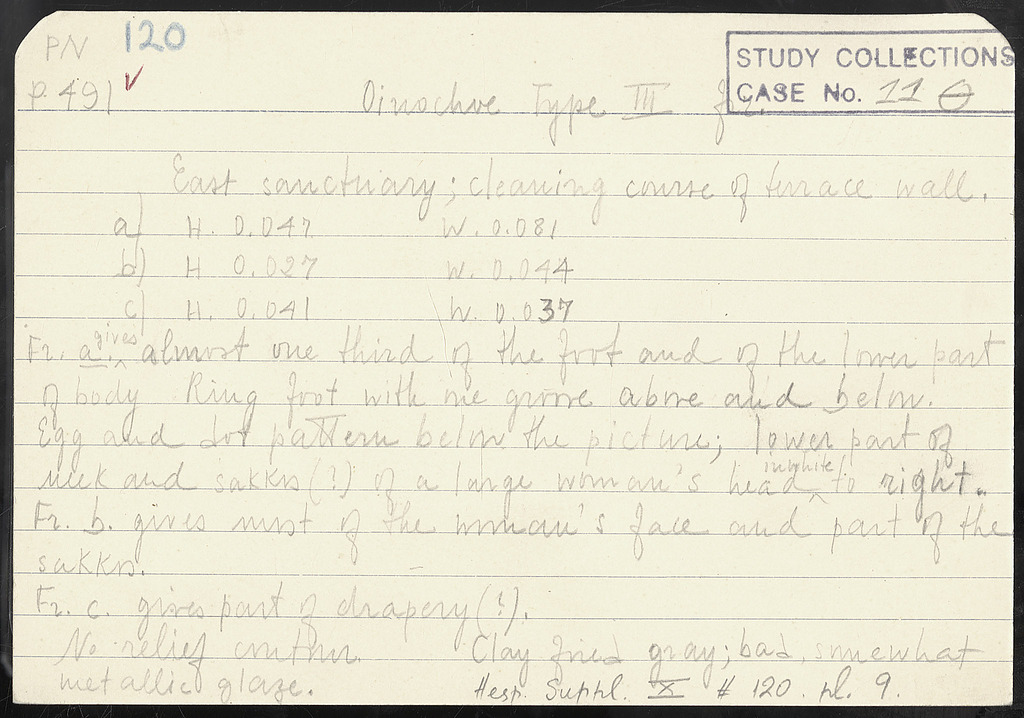 PN 120
STUDY COLLECTIONS
CASE No. 11 θ
P. 491 ✓ Oinochoe Type III fr.
East sanctuary; cleaning course of terrace wall.
a) H. 0.047 W. 0.081
b) H 0.027 W. 0.044
c) H. 0.041 W. 0.037
Fr. a. gives almost one third of the foot and of the lower part
of body Ring foot with one groove above and below.
Egg and dot pattern below the picture; lower part of
neck and sakkos (?) of a large woman's head in white to right.
Fr. b. gives most of the woman's face and part of the
sakkos.
Fr. c. gives part of drapery (?).
No relief contour. Clay fired gray; bad, somewhat
metallic glaze. Hesp. Suppl. X # 120. pl. 9.